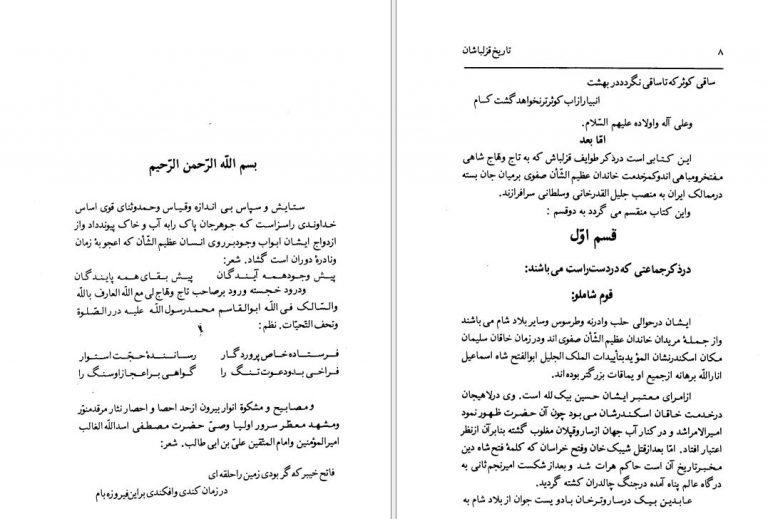 بسم اللّه الرّحمن الرّحیم
ستایش و سپاس بی اندازه وقیاس وحمدوثنای قوی اساس
خداوندی راسزاست که جوهرجان پاک رابه آب و خاک پیوندداد واز
ازدواج ایشان ابواب وجودبرروی انسان عظیم الشّأن که اعجوبهٔ زمان
ونادرهٔ دوران است گشاد. شعر:
پیش وجودهمه آیندگان پیش بقای همه پایندگان
ودرود خجسته ورود برصاحب تاج وهّاج لی مع اللّه العارف باللّه
والسّالک فی اللّه ابوالقاسم محمدرسول اللّه علیه دررالصّلوة
وتحف التّحیّات. نظم:
فرستاده خاص پروردگار رسانندهٔ حجّت استوار
فراخی بدودعوت تنگ را گواهی براعجازاوسنگ را
و مصابیح و مشکوة انوار بیرون ازحد احصا و احصار نثار مرقدمنوّر
ومشهد معطّر سرور اولیا وصیّ حضرت مصطفی اسداللّه الغالب
امیرالمؤمنین وامام المتّقین علیّ بن ابی طالب. شعر:
فاتح خیبرکه گر بودی زمین راحلقه ای
در زمان کندی وافکندی براین فیروزه بام
۸
تاریخ قزلباشان
ساقی کوثرکه تاساقی نگردددر بهشت
انبیارازاب کوثرترنخواهدگشت کام
وعلی آله واولاده علیهم السّلام.
امّا بعد
این کتابی است درذکرطوایف قزلباش که به تاج وهّاج شاهی
مفتخرومباهی اندوکمرخدمت خاندان عظیم الشّأن صفوی برمیان جان بسته
درممالک ایران به منصب جلیل القدرخانی وسلطانی سرافرازند.
واین کتاب منقسم می گردد به دوقسم:
قسم اوّل
درذکرجماعتی که دردست راست می باشند:
قوم شاملو:
ایشان درحوالی حلب وادرنه وطرسوس وسایر بلاد شام می باشند
واز جملهٔ مریدان خاندان عظیم الشّان صفوی اند ودرزمان خاقان سلیمان
مکان اسکندرنشان المؤیدبتأییدات الملک الجلیل ابوالفتح شاه اسماعیل
اناراللّه برهانه ازجمیع او یماقات بزرگتر بوده اند.
ازامرای معتبر ایشان حسین بیک لله است. وی درلاهیجان
درخدمت خاقان اسکندرشان می بود چون آن حضرت ظهور نمود
امیرالامراشد و در کنار آب جهان ازساروقپلان مغلوب گشته بنابرآن ازنظر
اعتبار افتاد. امّا بعدازقتل شیبک خان وفتح خراسان که کلمهٔ فتح شاه دین
مخبرتاریخ آن است حاکم هرات شد و بعداز شکست امیرنجم ثانی به
درگاه عالم پناه آمده درجنگ چالدران کشته گردید.
عابدین بیک درساروترخان بادو یست جوان از بلاد شام به